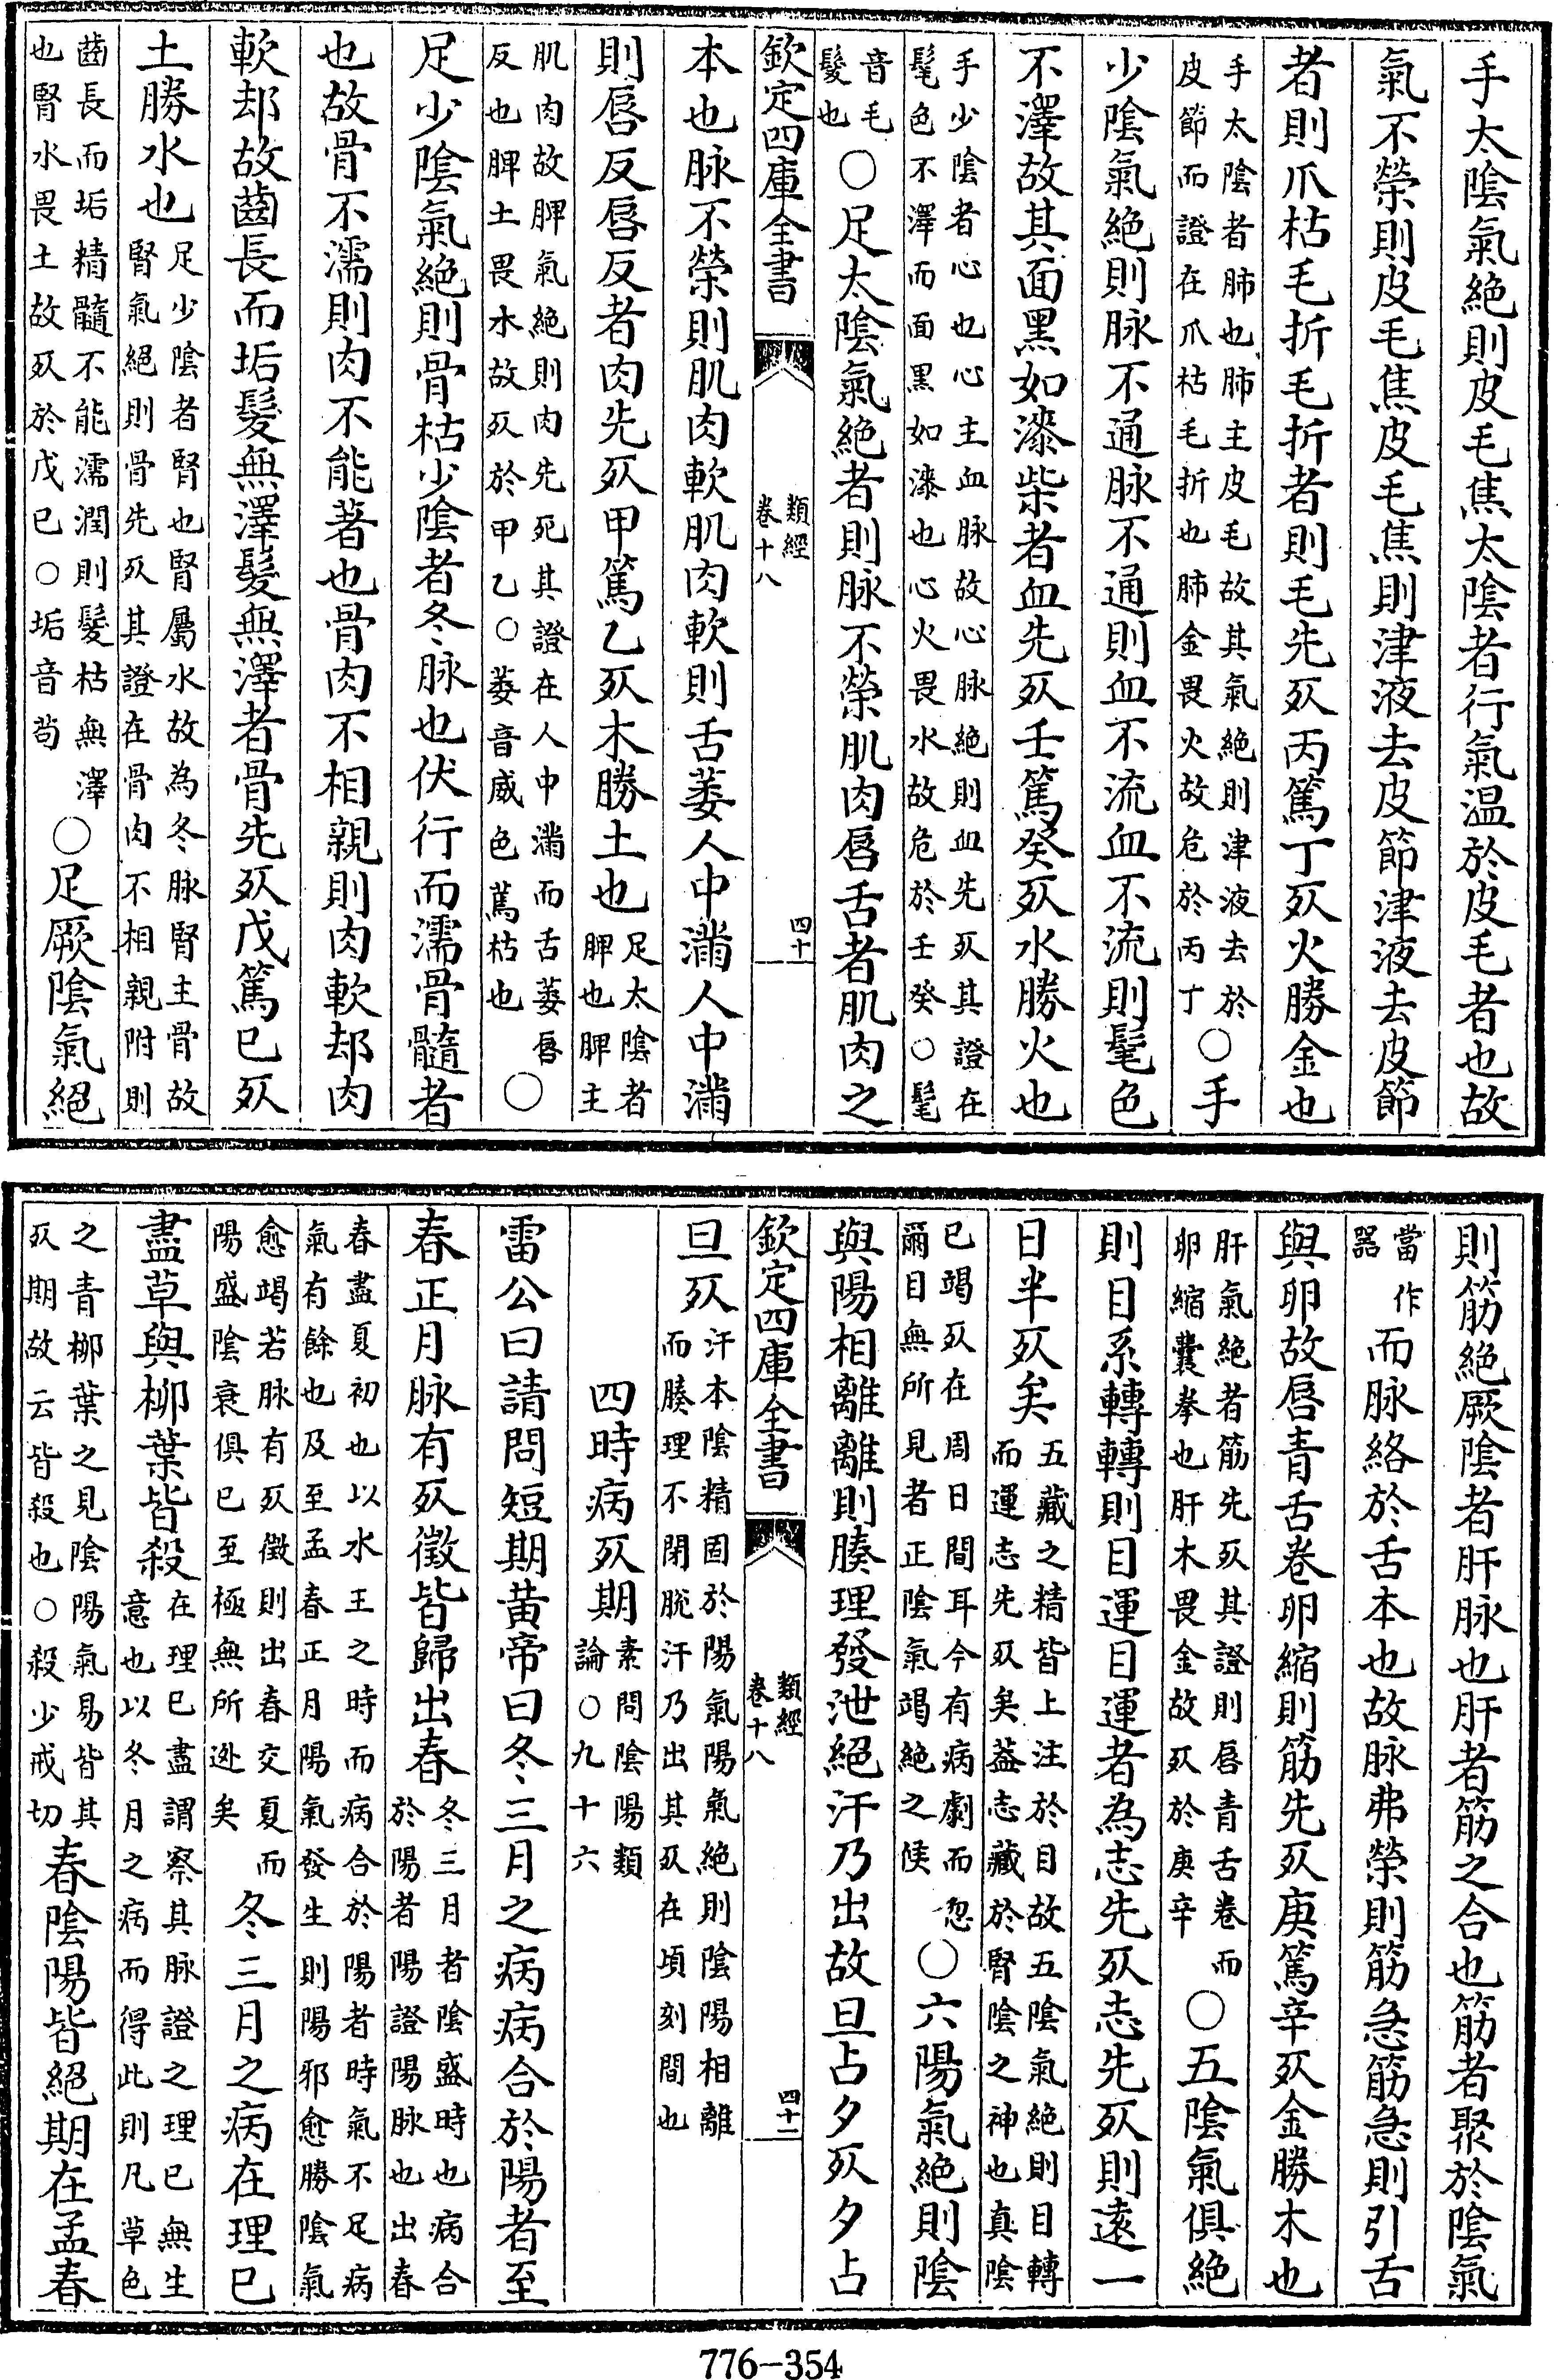 手太陰氣絶則皮毛焦太陰者行氣温於皮毛者也故
氣不榮則皮毛焦皮毛焦則津液去皮節津液去皮節
者則爪枯毛折毛折者則毛先死丙篤丁死火勝金也
手太陰者肺也肺主皮毛故其氣絶則津液去於
皮節而證在爪枯毛折也肺金畏火故危於丙丁
○手
少陰氣絶則脉不通脉不通則血不流血不流則髦色
不澤故其面黑如漆柴者血先死壬篤癸死水勝火也
手少陰者心也心主血脉故心脉絶則血先死其證在
髦色不澤而面黒如漆也心火畏水故危於壬癸○髦
音毛
髮也
○足太陰氣絶者則脉不榮肌肉唇舌者肌肉之
欽定四庫全書
類經
卷十八
四十
本也脉不榮則肌肉軟肌肉軟則舌萎人中滿人中滿
則唇反唇反者肉先死甲篤乙死木勝土也
足太陰者
脾也脾主
肌肉故脾氣絶則肉先死其證在人中滿而舌萎唇
反也脾土畏木故死於甲乙○萎音威色蔫枯也
○
足少陰氣絶則骨枯少陰者冬脉也伏行而濡骨髓者
也故骨不濡則肉不能著也骨肉不相親則肉軟却肉
軟却故齒長而垢髮無澤髮無澤者骨先死戊篤己死
土勝水也
足少陰者腎也腎屬水故為冬脉腎主骨故
腎氣絕則骨先死其證在骨肉不相親附則
齒長而垢精髓不能濡潤則髮枯無澤
也腎水畏土故死於戊己○垢音苟
○足厥陰氣絕
則筋絶厥陰者肝脉也肝者筋之合也筋者聚於陰氣
當作
器
而脉絡於舌本也故脉弗榮則筋急筋急則引舌
與卵故唇青舌卷卵縮則筋先死庚篤辛死金勝木也
肝氣絶者筋先死其證則唇青舌卷而
卵縮囊拳也肝木畏金故死於庚辛
○五陰氣俱絶
則目系轉轉則目運目運者為志先死志先死則遠一
日半死矣
五藏之精皆上注於目故五陰氣絶則目轉
而運志先死矣葢志藏於腎陰之神也真陰
已竭死在周日間耳今有病劇而忽
爾目無所見者正陰氣竭絶之候
○六陽氣絶則陰
與陽相離離則腠理發泄絕汗乃出故旦占夕死夕占
欽定四庫全書
類經
卷十八
四十一
旦死
汗本陰精固於陽氣陽氣絶則陰陽相離
而腠理不閉脫汗乃出其死在頃刻間也
四時病死期
素問陰陽類
論○九十六
雷公曰請問短期黄帝曰冬三月之病病合於陽者至
春正月脉有死徵皆歸出春
冬三月者陰盛時也病合
於陽者陽證陽脉也出春
春盡夏初也以水王之時而病合於陽者時氣不足病
氣有餘也及至孟春正月陽氣發生則陽邪愈勝陰氣
愈竭若脉有死徵則出春交夏而
陽盛陰衰俱已至極無所逃矣
冬三月之病在理已
盡草與柳葉皆殺
在理已盡謂察其脉證之理已無生
意也以冬月之病而得此則凡草色
之青柳葉之見陰陽氣易皆其
死期故云皆殺也○殺少戒切
春陰陽皆絕期在孟春
776-354